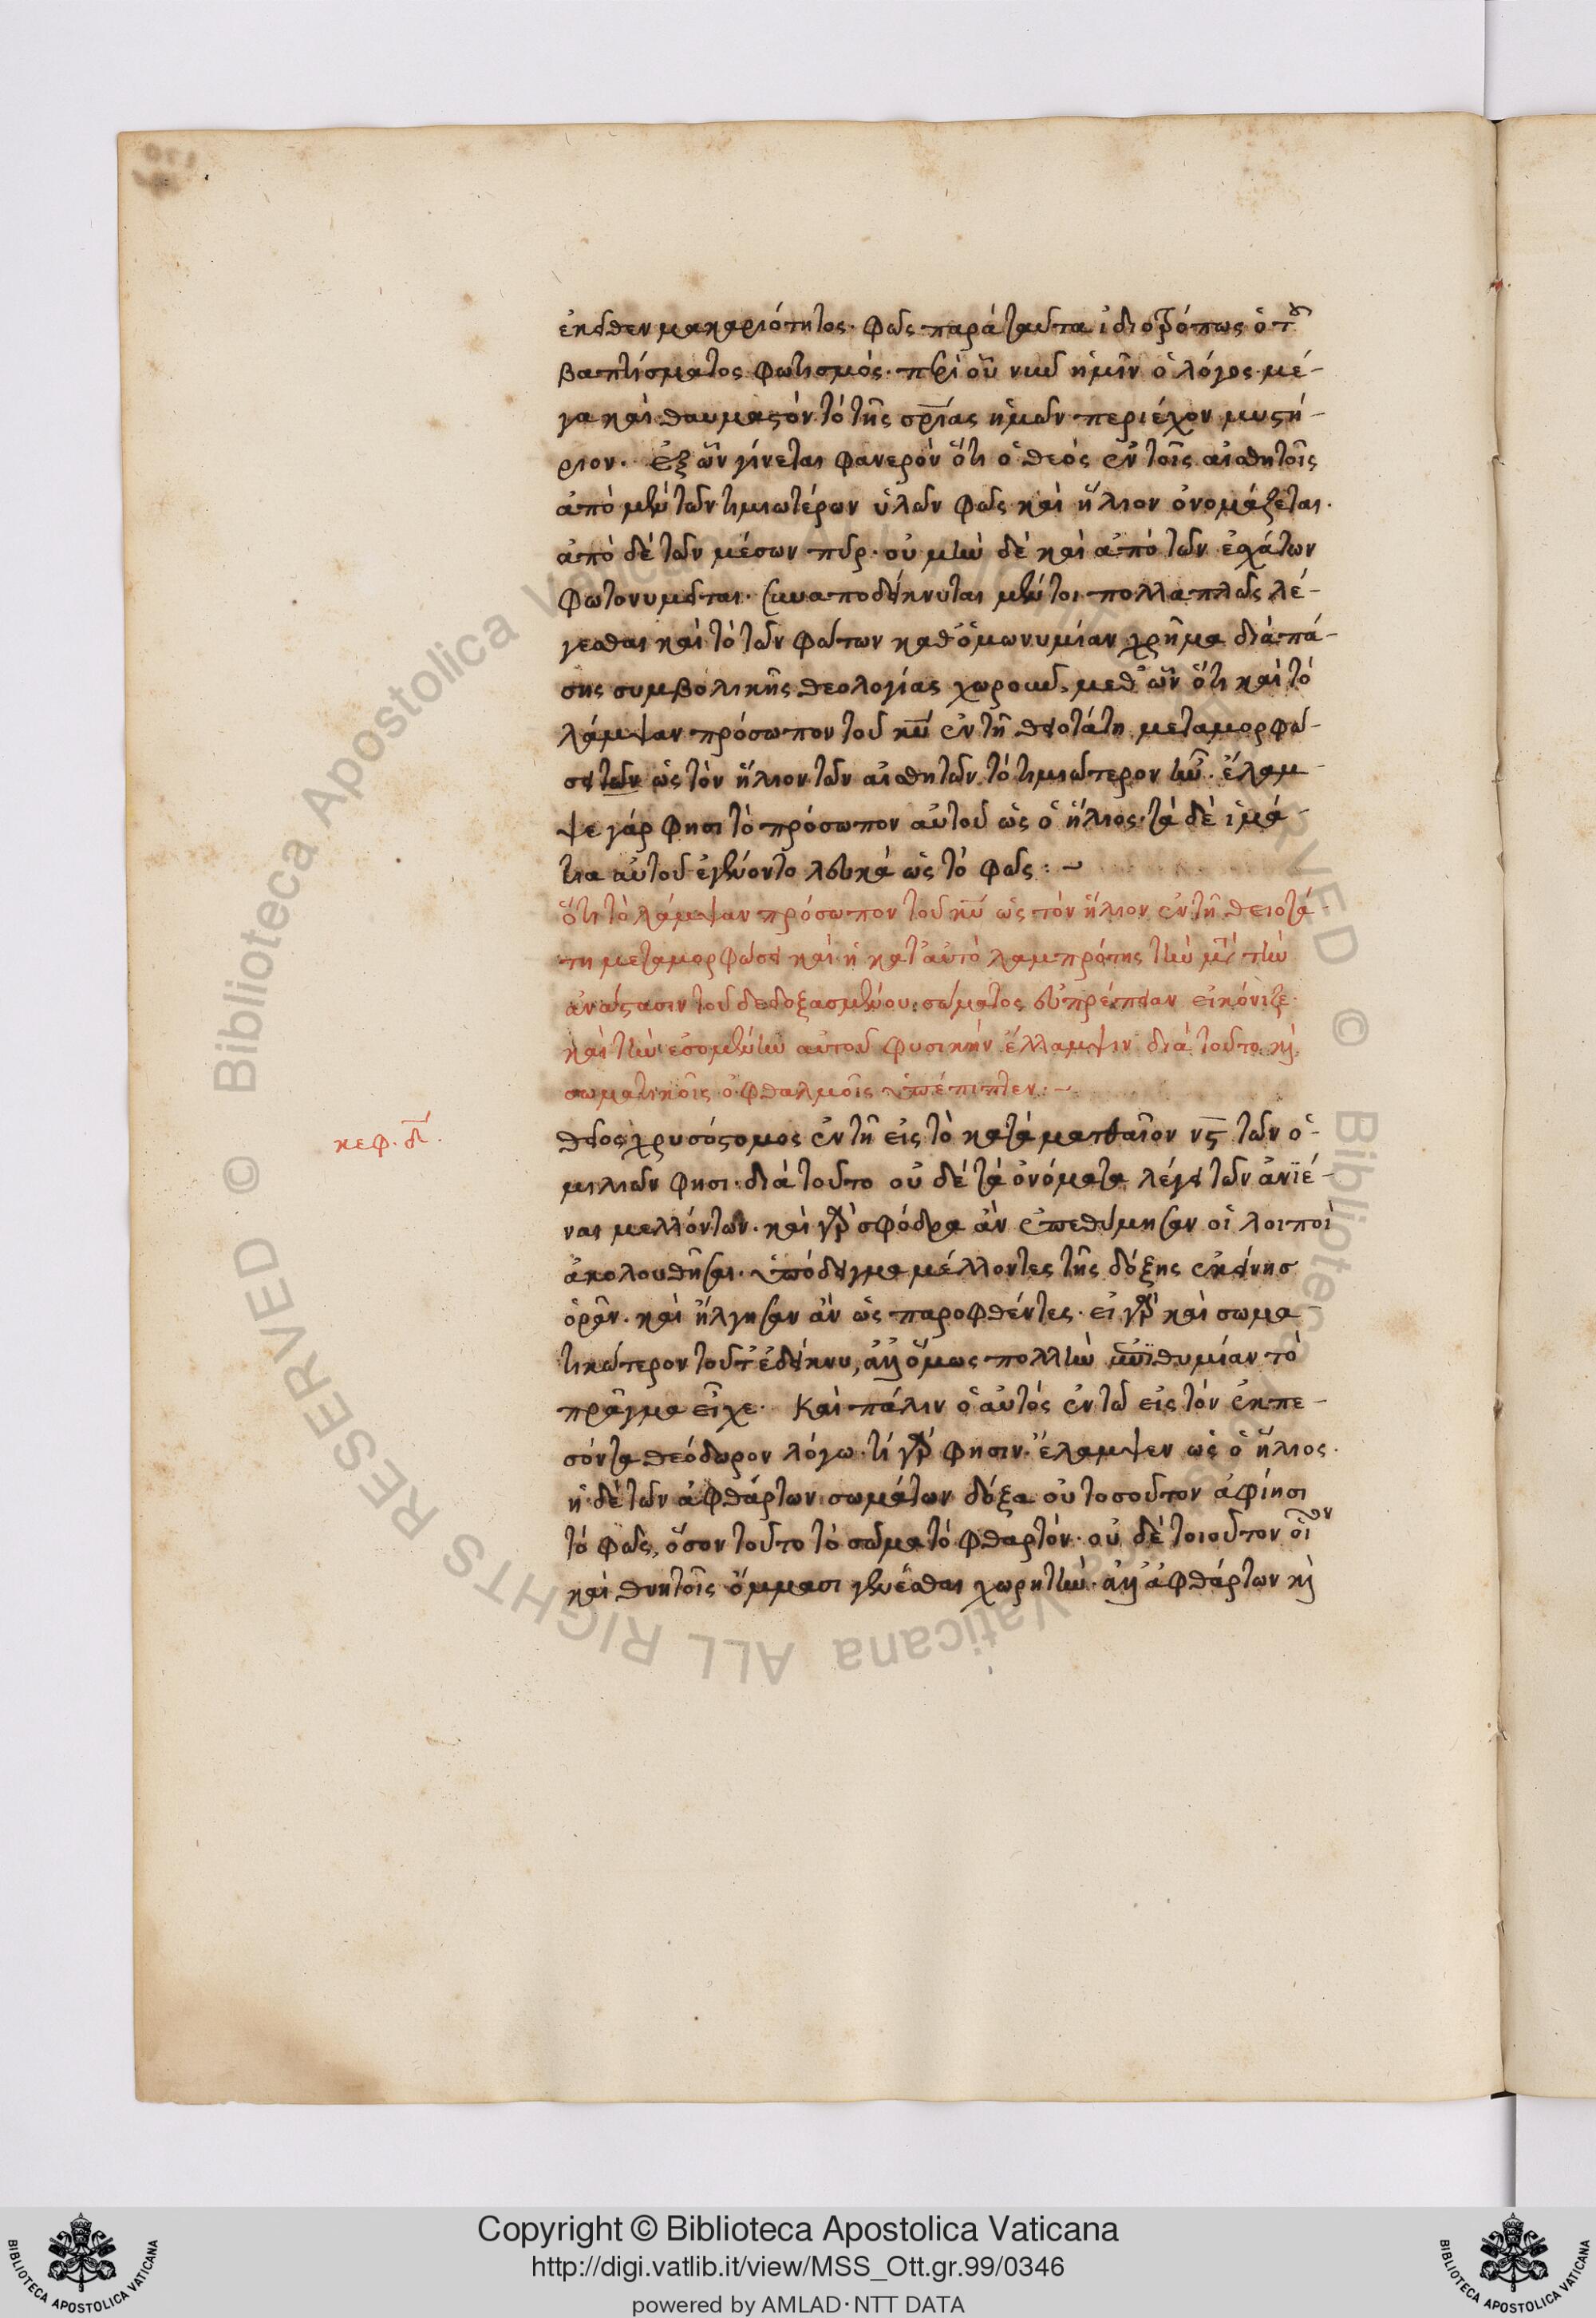 ἐκεῖθεν μακαριότητος. φῶς παρὰ ταῦτα ἰδιοτρόπως ὁ τοῦ
βαπτίσματος φωτισμός. περὶ οὗ νῦν ἡμῖν ὁ λόγος. μέ-
γα καὶ θαυμαστὸν τὸ τῆς σρίας ἡμῶν περιέχον μυστή-
ριον. ἐξ ὧν γίνεται φανερὸν ὅτι ὁ θεὸς ἐν τοῖς αἰσθητοῖς
ἀπὸ μὲν τῶν τιμιωτέρων ὑλῶν φῶς καὶ ἥλιον ὀνομάζεται.
ἀπὸ δὲ τῶν μέσων πῦρ. οὐ μὴν δὲ καὶ ἀπὸ τῶν ἐσχάτων
φωτονυμεῖται. συναποδείκνυται μέντοι πολλαπλῶς λέ-
γεσθαι καὶ τὸ τῶν φώτων καθ' ὁμωνυμίαν χρῆμα διὰ πά-
σης συμβολικῆς θεολογίας χωροῦν. μεθ' ὧν ὅτι καὶ τὸ
λάμψαν πρόσωπον τοῦ κυ ἐν τῇ θειοτάτῃ μεταμορφώ-
σει τῶν ὡς τὸν ἥλιον τῶν αἰσθητῶν τὸ τιμιώτερον ἦν. ἔλαμ-
ψε γάρ φησι τὸ πρόσωπον αὐτοῦ ὡς ὁ ἥλιος. τὰ δὲ ἱμά-
τια αὐτοῦ ἐγένοντο λευκὰ ὡς τὸ φῶς: ~
ὅτι τὸ λάμψαν πρόσωπον τοῦ κυ ὡς τὸν ἥλιον ἐν τῇ θειοτά-
τῃ μεταμορφώσει καὶ ἡ κατ' αὐτὸ λαμπρότης τὴν μετὰ τὴν
ἀνάστασιν τοῦ δεδοξασμένου σώματος εὐπρέπειαν εἰκόνιζε.
καὶ τὴν ἐσομένην αὐτοῦ φυσικὴν ἔλλαμψιν διὰ τοῦτο καὶ
σωματικοῖς ὀφθαλμοῖς ὑπέπιπτεν: ~
κεφ. δ.
θεῖος χρυσόστομος ἐν τῇ εἰς τὸ κατὰ ματθαῖον νϛ τῶν ὁ-
μιλιῶν φησι. διὰ τοῦτο οὐδὲ τὰ ὀνόματα λέγει τῶν ἀνϊέ-
ναι μελλόντων. καὶ γὰρ σφόδρα ἂν ἐπεθύμησαν οἱ λοιποὶ
ἀκολουθῆσαι. ὑπόδειγμα μέλλοντες τῆς δόξης ἐκείνης
ὁρᾶν. καὶ ἤλγησαν ἂν ὡς παροφθέντες. εἰ γὰρ καὶ σωμα-
τικώτερον τοῦτ' ἐδείκνυ, ἀλλ' ὅμως πολλὴν ἐπιθυμίαν τὸ
πρᾶγμα εἶχε. Καὶ πάλιν ὁ αὐτὸς ἐν τῶ εἰς τὸν ἐκπε-
σόντα θεόδωρον λόγω. τί γάρ φησιν. ἔλαμψεν ὡς ὁ ἥλιος.
ἡ δὲ τῶν ἀφθάρτων σωμάτων δόξα οὐ τοσοῦτον ἀφίησι
τὸ φῶς, ὅσον τοῦτο τὸ σῶμα τὸ φθαρτόν. οὐδὲ τοιοῦτον οἷον
καὶ θνητοῖς ὄμμασι γενέσθαι χωρητήν. ἀλλ' ἀφθάρτων καὶ
© Biblioteca Apostolica Vaticana ALL RIGHTS RESERVED
Copyright © Biblioteca Apostolica Vaticana
http://digi.vatlib.it/view/MSS_Ott.gr.99/0346
powered by AMLAD·NTT DATA
BIBLIOTECA APOSTOLICA VATICANA
BIBLIOTECA APOSTOLICA VATICANA